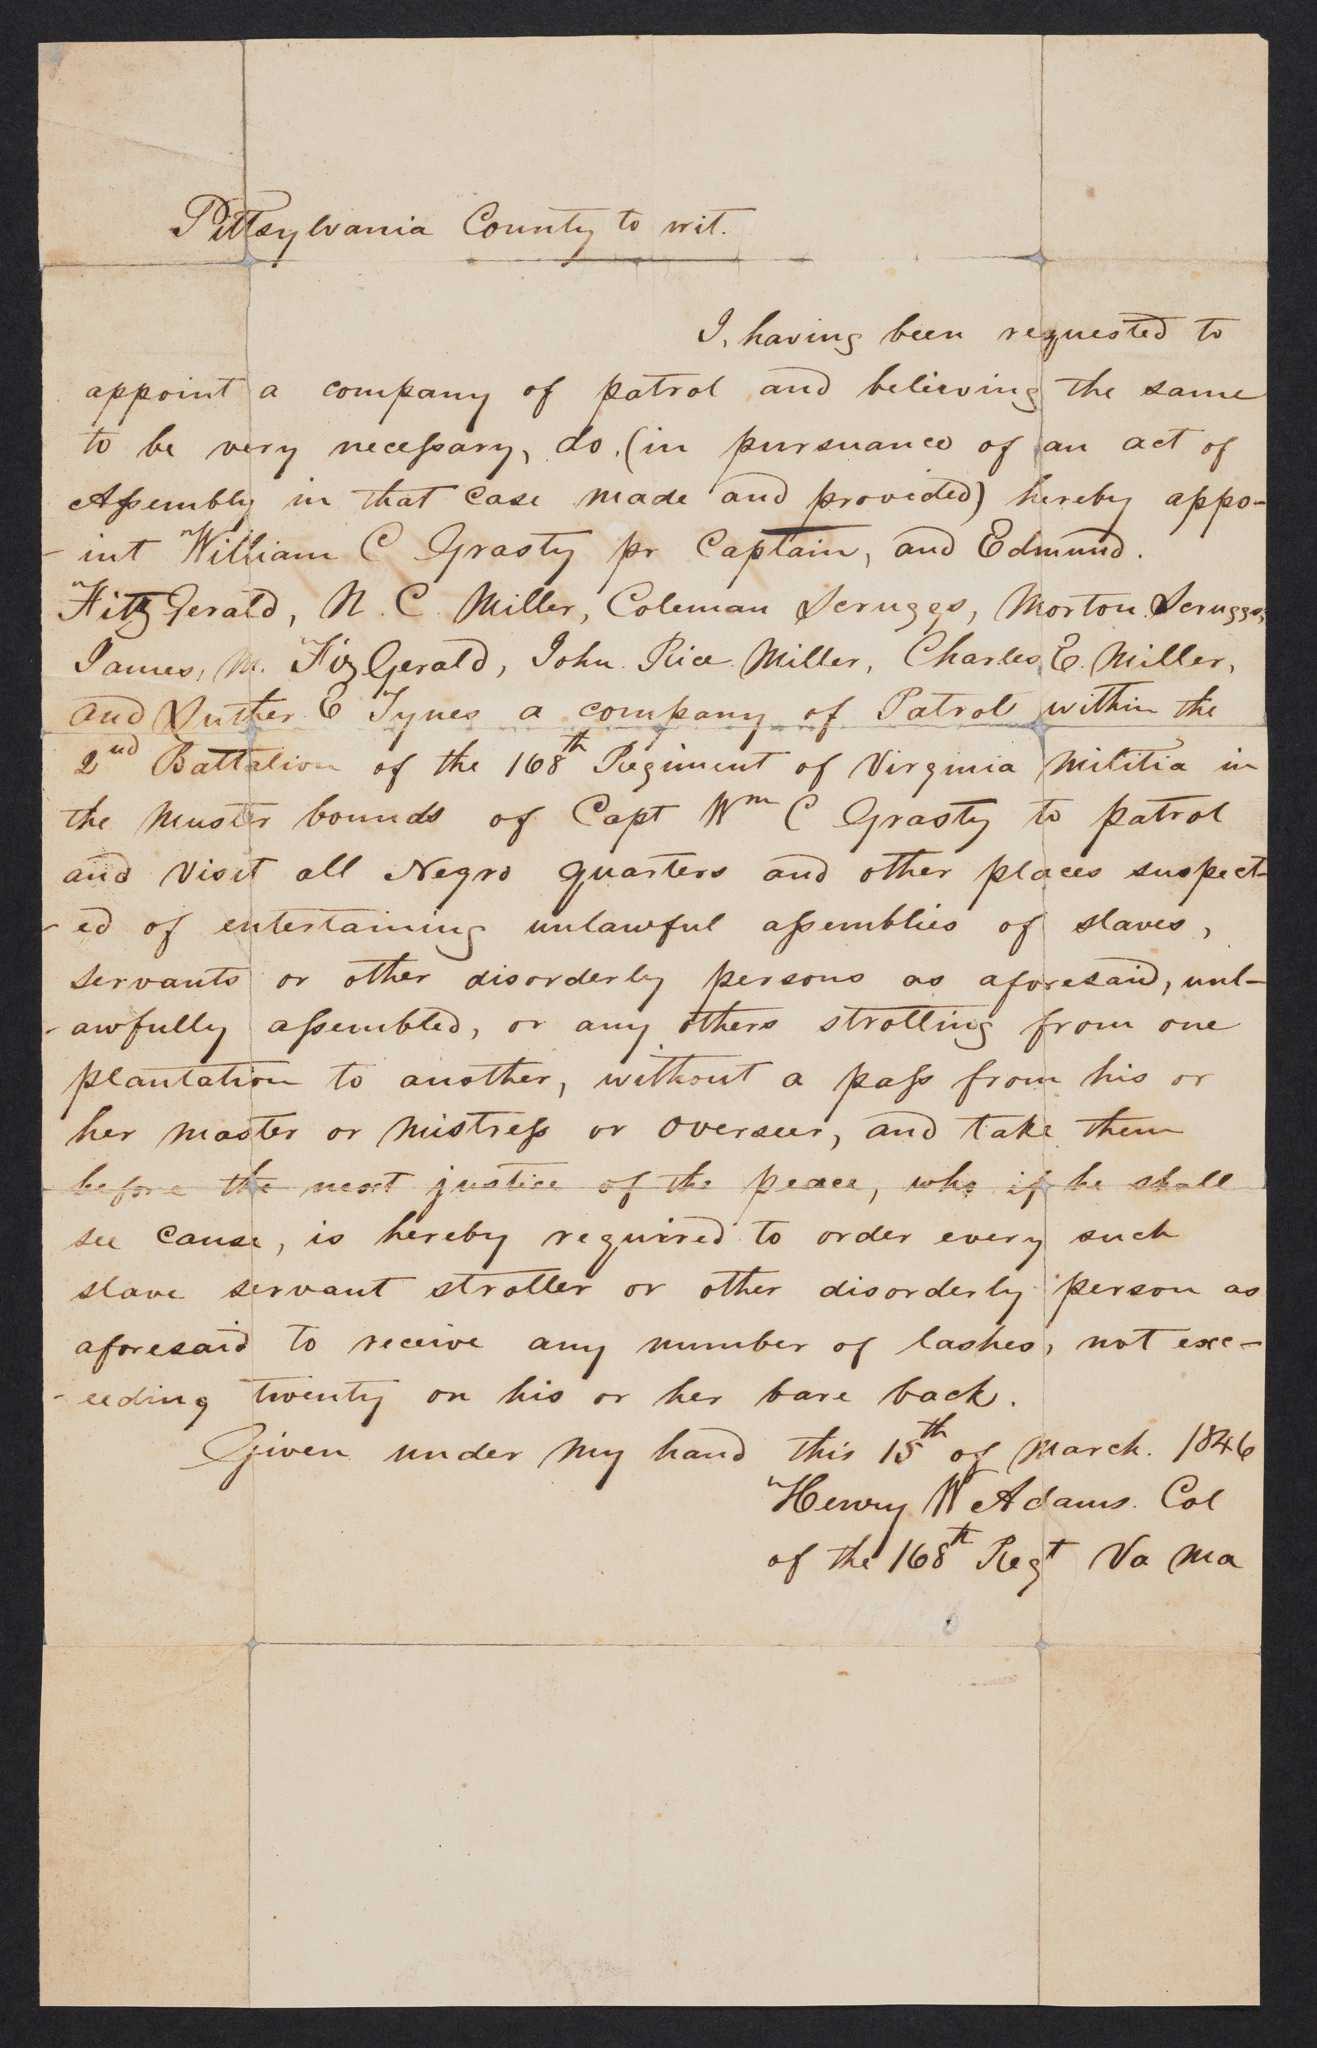 Pittsylvania County to wit.
I, having been requested to
appoint a company of patrol and believing the same
to be very necessary, do, (in pursuance of an act of
Assembly in that case made and provided) hereby appo-
-int William C Grasty pr Captain, and Edmund.
Fitz Gerald, N. C. Miller, Coleman Scruggs, Morton Scruggs,
James, M. Fiz Gerald, John Rice Miller, Charles E. Miller,
and Luther E Tynes a company of Patrol within the
2nd Battalion of the 168th Regiment of Virginia Militia in
the Muster bounds of Capt Wm C Grasty to patrol
and visit all Negro quarters and other places suspect-
-ed of entertaining unlawful assemblies of slaves,
servants or other disorderly persons as aforesaid, unl-
-awfully assembled, or any others strolling from one
plantation to another, without a pass from his or
her master or mistress or overseer, and take them
before the next justice of the peace, who if he shall
see cause, is hereby required to order every such
slave servant stroller or other disorderly person as
aforesaid to receive any number of lashes, not exc-
-eeding twenty on his or her bare back.
Given under my hand this 15th of March. 1846
Henry W Adams. Col
of the 168th Regt Va Ma